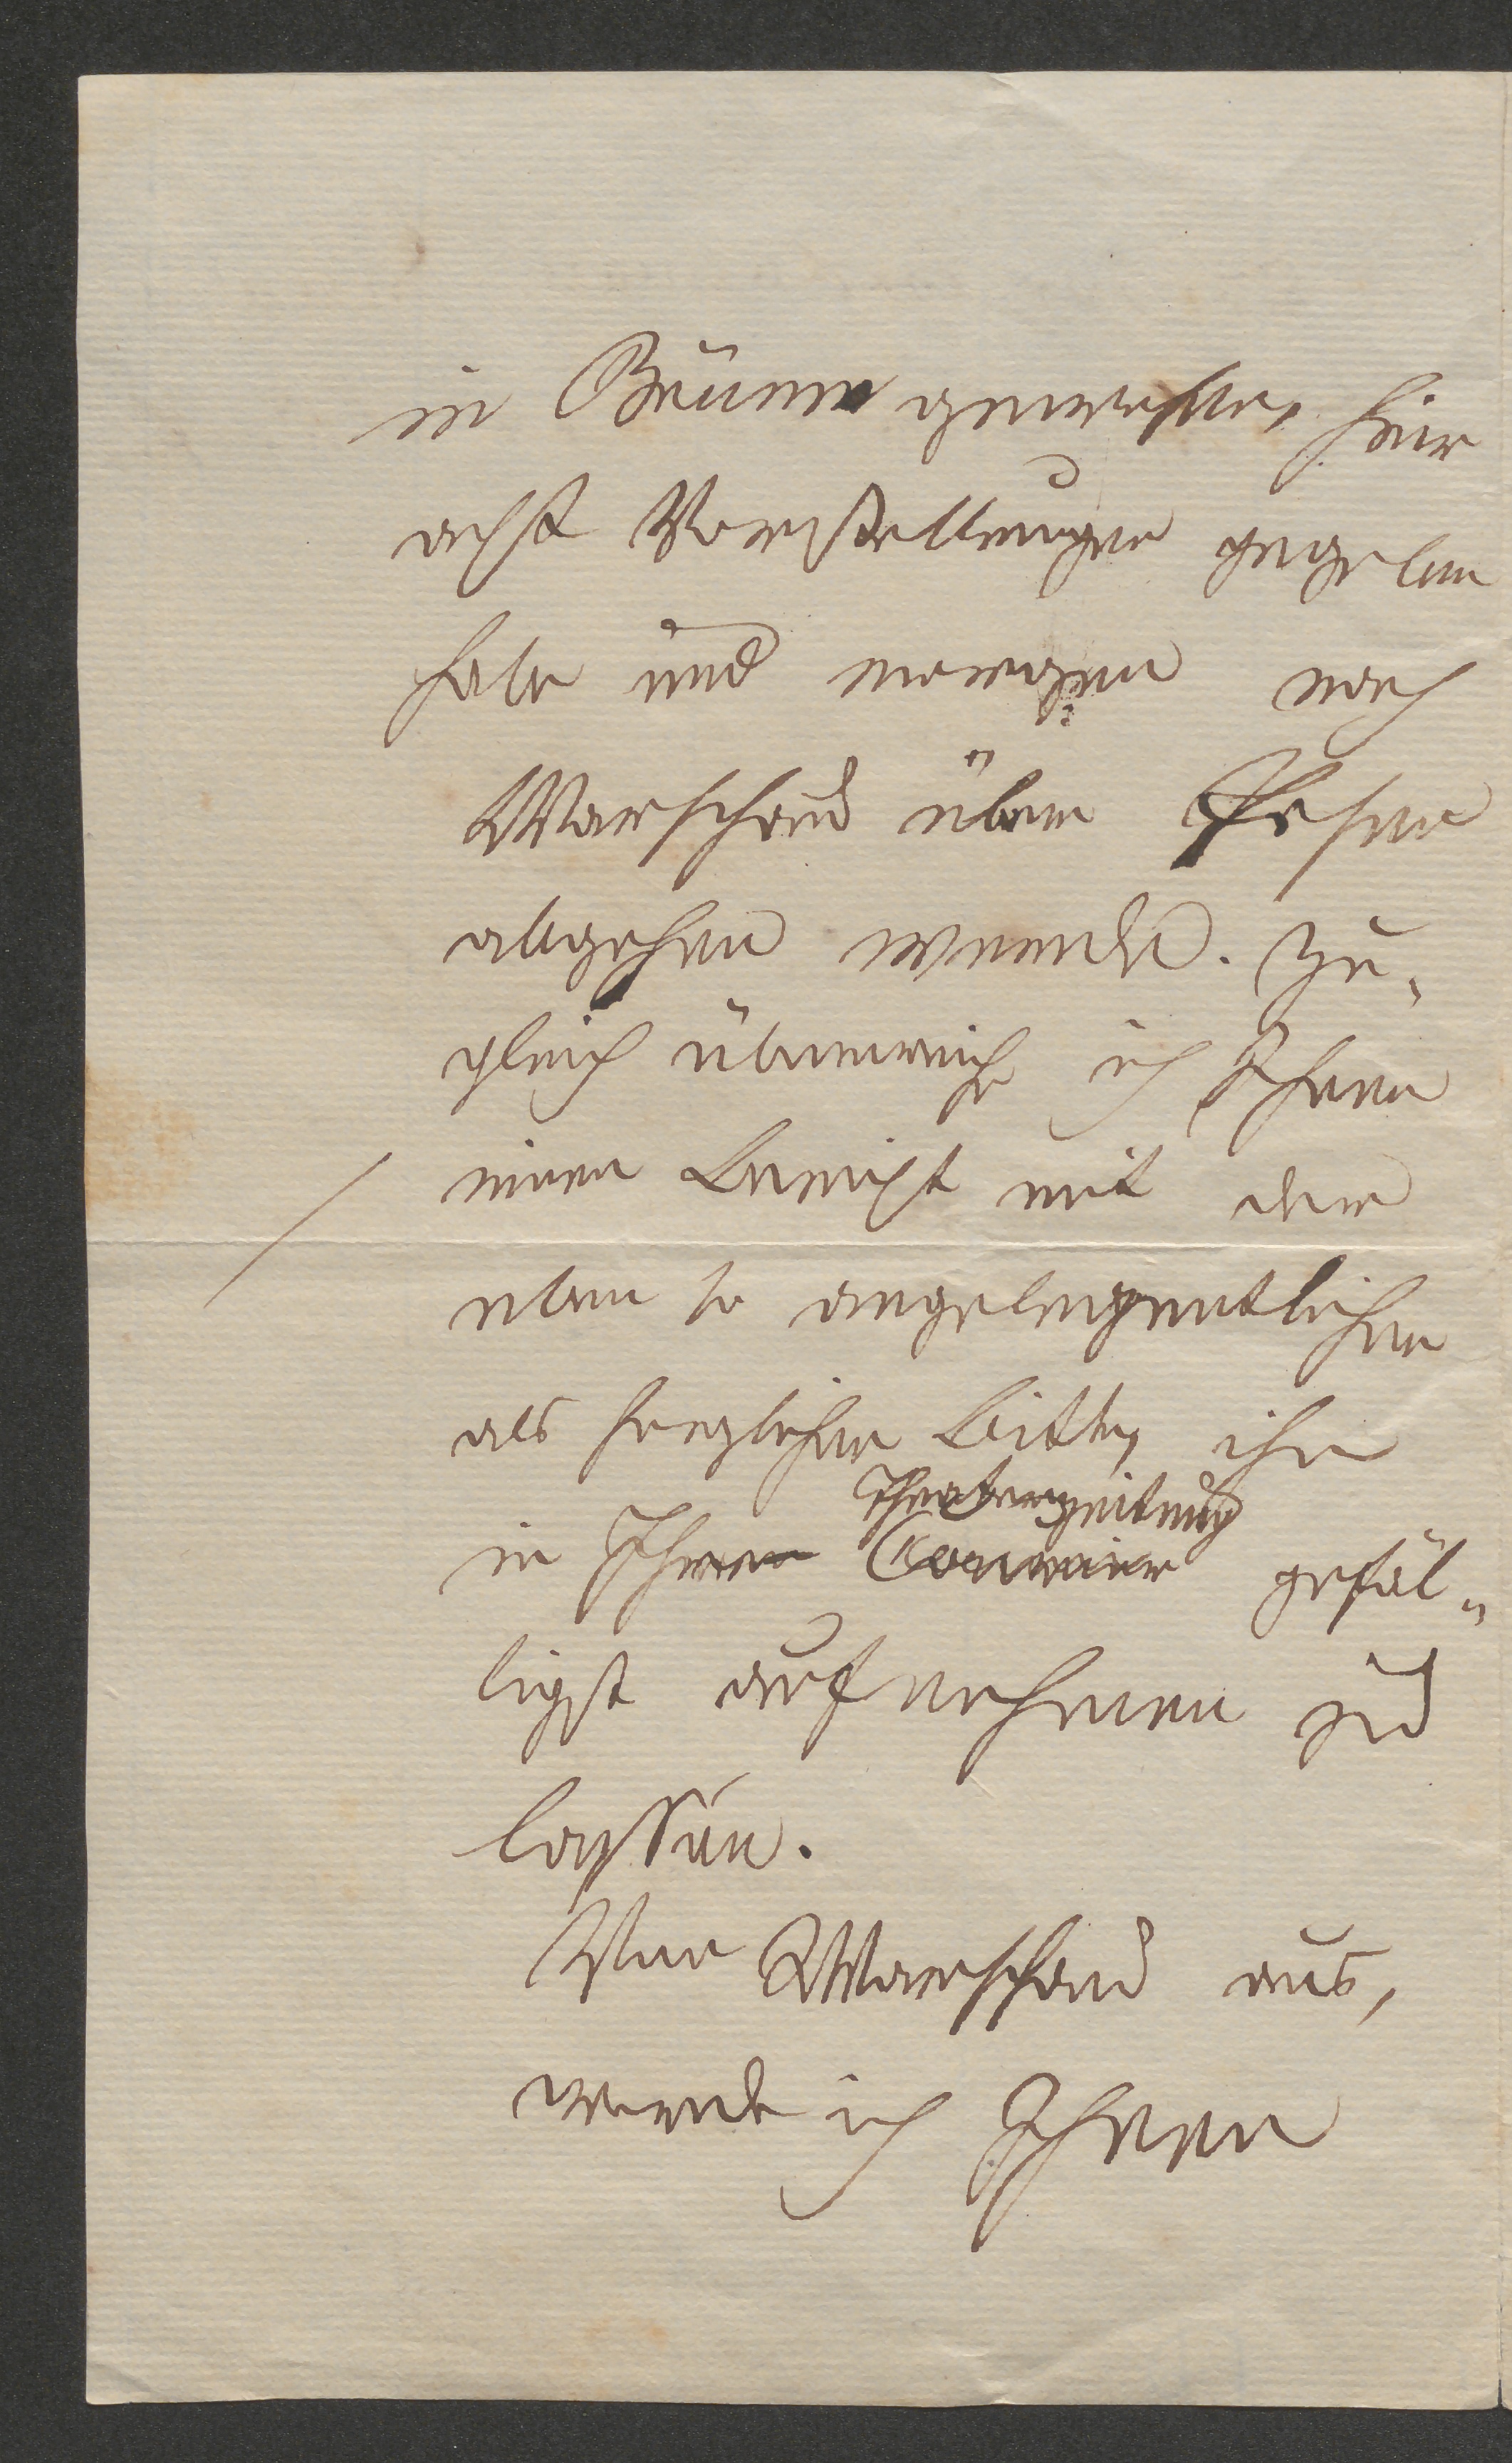 in Brünn gewesen, hier
acht Vorstellungen gegeben
habe und morgen nach
Warschau über Posen
abgehen werde. Zu-
gleich überreiche ich Ihnen
einen Bericht mit der
eben so angelegentlichen
als herzlichen Bitte, ihn
Theaterzeitung
in Ihren Courrier gefäl-
ligst aufnehmen zu
lassen.
Von Warschau aus,
werde ich Ihnen